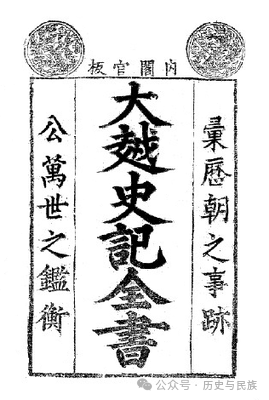 內閣官板
彙歷朝之事跡
大越史記全書
公萬世之鑑衡
公众号 · 历史与民族